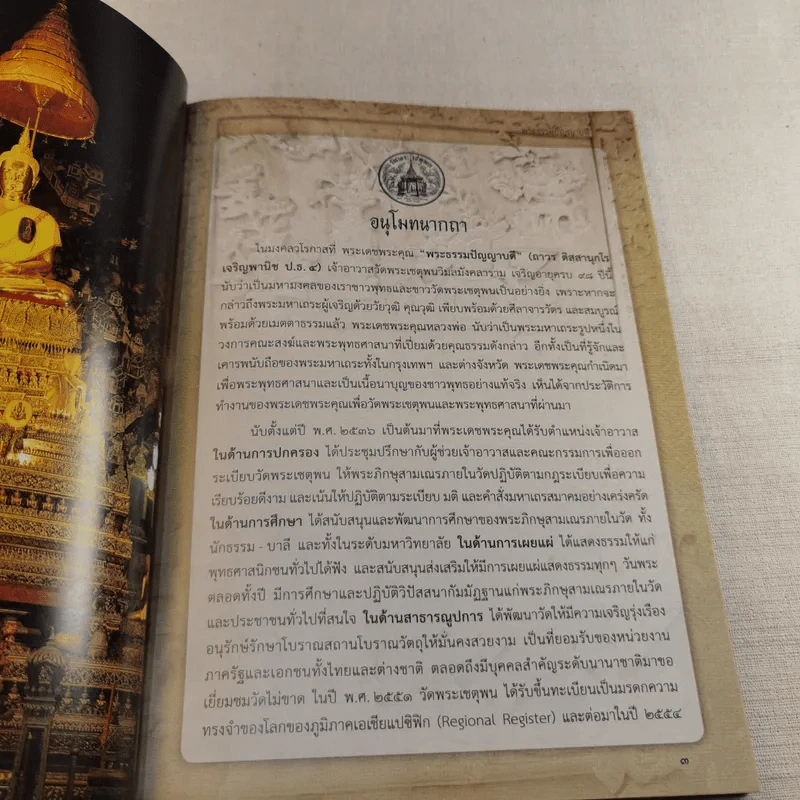 อนุโมทนากถา
ในมงคลวโรกาสที่ พระเดชพระคุณ “พระธรรมปัญญาบดี” (ถาวร ติสสานุกโร
เจริญพานิช ป.ธ. ๔) เจ้าอาวาสวัดพระเชตุพนวิมลมังคลาราม เจริญอายุครบ ๙๘ ปีนี้
นับว่าเป็นมหามงคลของเราชาวพุทธและชาววัดพระเชตุพนเป็นอย่างยิ่ง เพราะหากจะ
กล่าวถึงพระมหาเถระผู้เจริญด้วยวัยวุฒิ คุณวุฒิ เพียบพร้อมด้วยศีลาจารวัตร และสมบูรณ์
พร้อมด้วยเมตตาธรรมแล้ว พระเดชพระคุณหลวงพ่อ นับว่าเป็นพระมหาเถระรูปหนึ่งใน
วงการคณะสงฆ์และพระพุทธศาสนาที่เปี่ยมด้วยคุณธรรมดังกล่าว อีกทั้งเป็นที่รู้จักและ
เคารพนับถือของพระมหาเถระทั้งในกรุงเทพฯ และต่างจังหวัด พระเดชพระคุณกำเนิดมา
เพื่อพระพุทธศาสนาและเป็นเนื้อนาบุญของชาวพุทธอย่างแท้จริง เห็นได้จากประวัติการ
ทำงานของพระเดชพระคุณเพื่อวัดพระเชตุพนและพระพุทธศาสนาที่ผ่านมา
นับตั้งแต่ปี พ.ศ. ๒๕๓๖ เป็นต้นมาที่พระเดชพระคุณได้รับตำแหน่งเจ้าอาวาส
ในด้านการปกครอง ได้ประชุมปรึกษากับผู้ช่วยเจ้าอาวาสและคณะกรรมการเพื่อออก
ระเบียบวัดพระเชตุพน ให้พระภิกษุสามเณรภายในวัดปฏิบัติตามกฎระเบียบเพื่อความ
เรียบร้อยดีงาม และเน้นให้ปฏิบัติตามระเบียบ มติ และคำสั่งมหาเถรสมาคมอย่างเคร่งครัด
ในด้านการศึกษา ได้สนับสนุนและพัฒนาการศึกษาของพระภิกษุสามเณรภายในวัด ทั้ง
นักธรรม - บาลี และทั้งในระดับมหาวิทยาลัย ในด้านการเผยแผ่ ได้แสดงธรรมให้แก่
พุทธศาสนิกชนทั่วไปได้ฟัง และสนับสนุนส่งเสริมให้มีการเผยแผ่แสดงธรรมทุกๆ วันพระ
ตลอดทั้งปี มีการศึกษาและปฏิบัติวิปัสสนากัมมัฏฐานแก่พระภิกษุสามเณรภายในวัด
และประชาชนทั่วไปที่สนใจ ในด้านสาธารณูปการ ได้พัฒนาวัดให้มีความเจริญรุ่งเรือง
อนุรักษ์รักษาโบราณสถานโบราณวัตถุให้มั่นคงสวยงาม เป็นที่ยอมรับของหน่วยงาน
ภาครัฐและเอกชนทั้งไทยและต่างชาติ ตลอดถึงมีบุคคลสำคัญระดับนานาชาติมาขอ
เยี่ยมชมวัดไม่ขาด ในปี พ.ศ. ๒๕๕๑ วัดพระเชตุพน ได้รับขึ้นทะเบียนเป็นมรดกความ
ทรงจำของโลกของภูมิภาคเอเชียแปซิฟิก (Regional Register) และต่อมาในปี ๒๕๕๔
๓